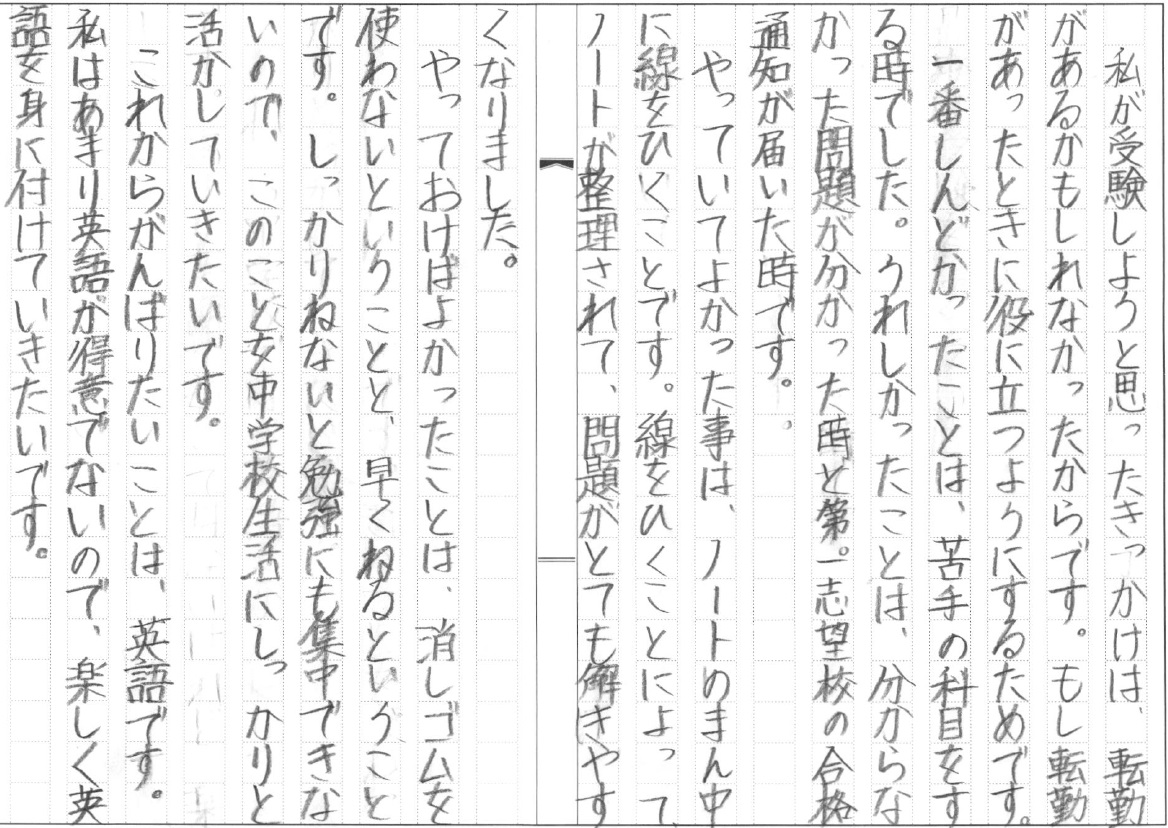 私が受験しようと思ったきっかけは、転勤
があるかもしれなかったからです。もし転勤
があったときに役に立つようにするためです。
一番しんどかったことは、苦手の科目をす
る時でした。うれしかったことは、分からな
かった問題が分かった時と第一志望校の合格
通知が届いた時です。
やっていてよかった事は、ノートのまん中
に線をひくことです。線をひくことによって、
ノートが整理されて、問題がとても解きやす
くなりました。
やっておけばよかったことは、消しゴムを
使わないということと、早くねるということ
です。しっかりねないと勉強にも集中できな
いので、このことを中学校生活にしっかりと
活かしていきたいです。
これからがんばりたいことは、英語です。
私はあまり英語が得意でないので、楽しく英
語を身に付けていきたいです。